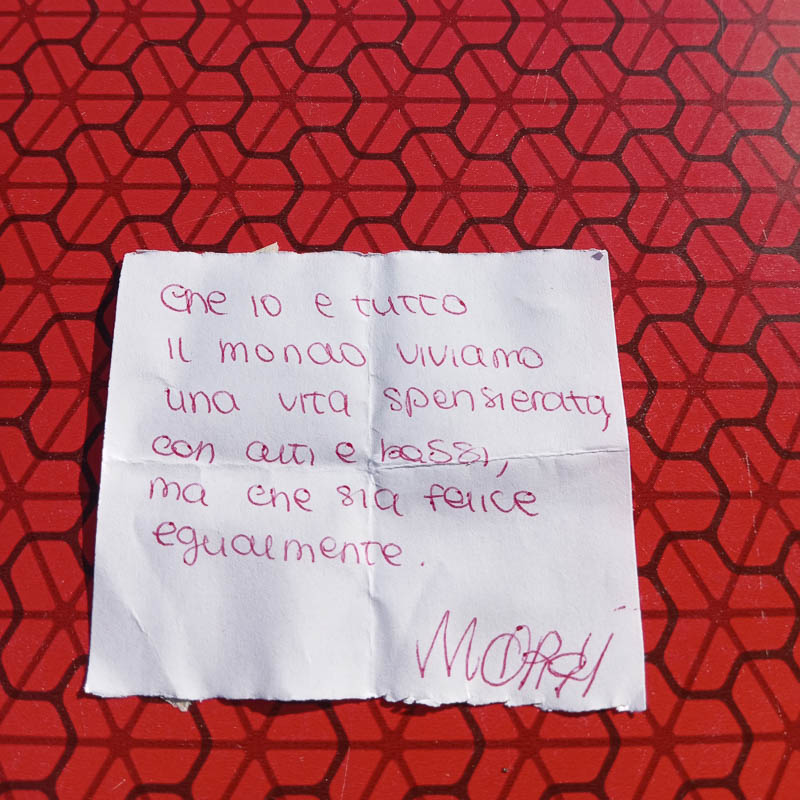 che io e tutto
il mondo viviamo
una vita spensierata,
con alti e bassi,
ma che sia felice
egualmente.